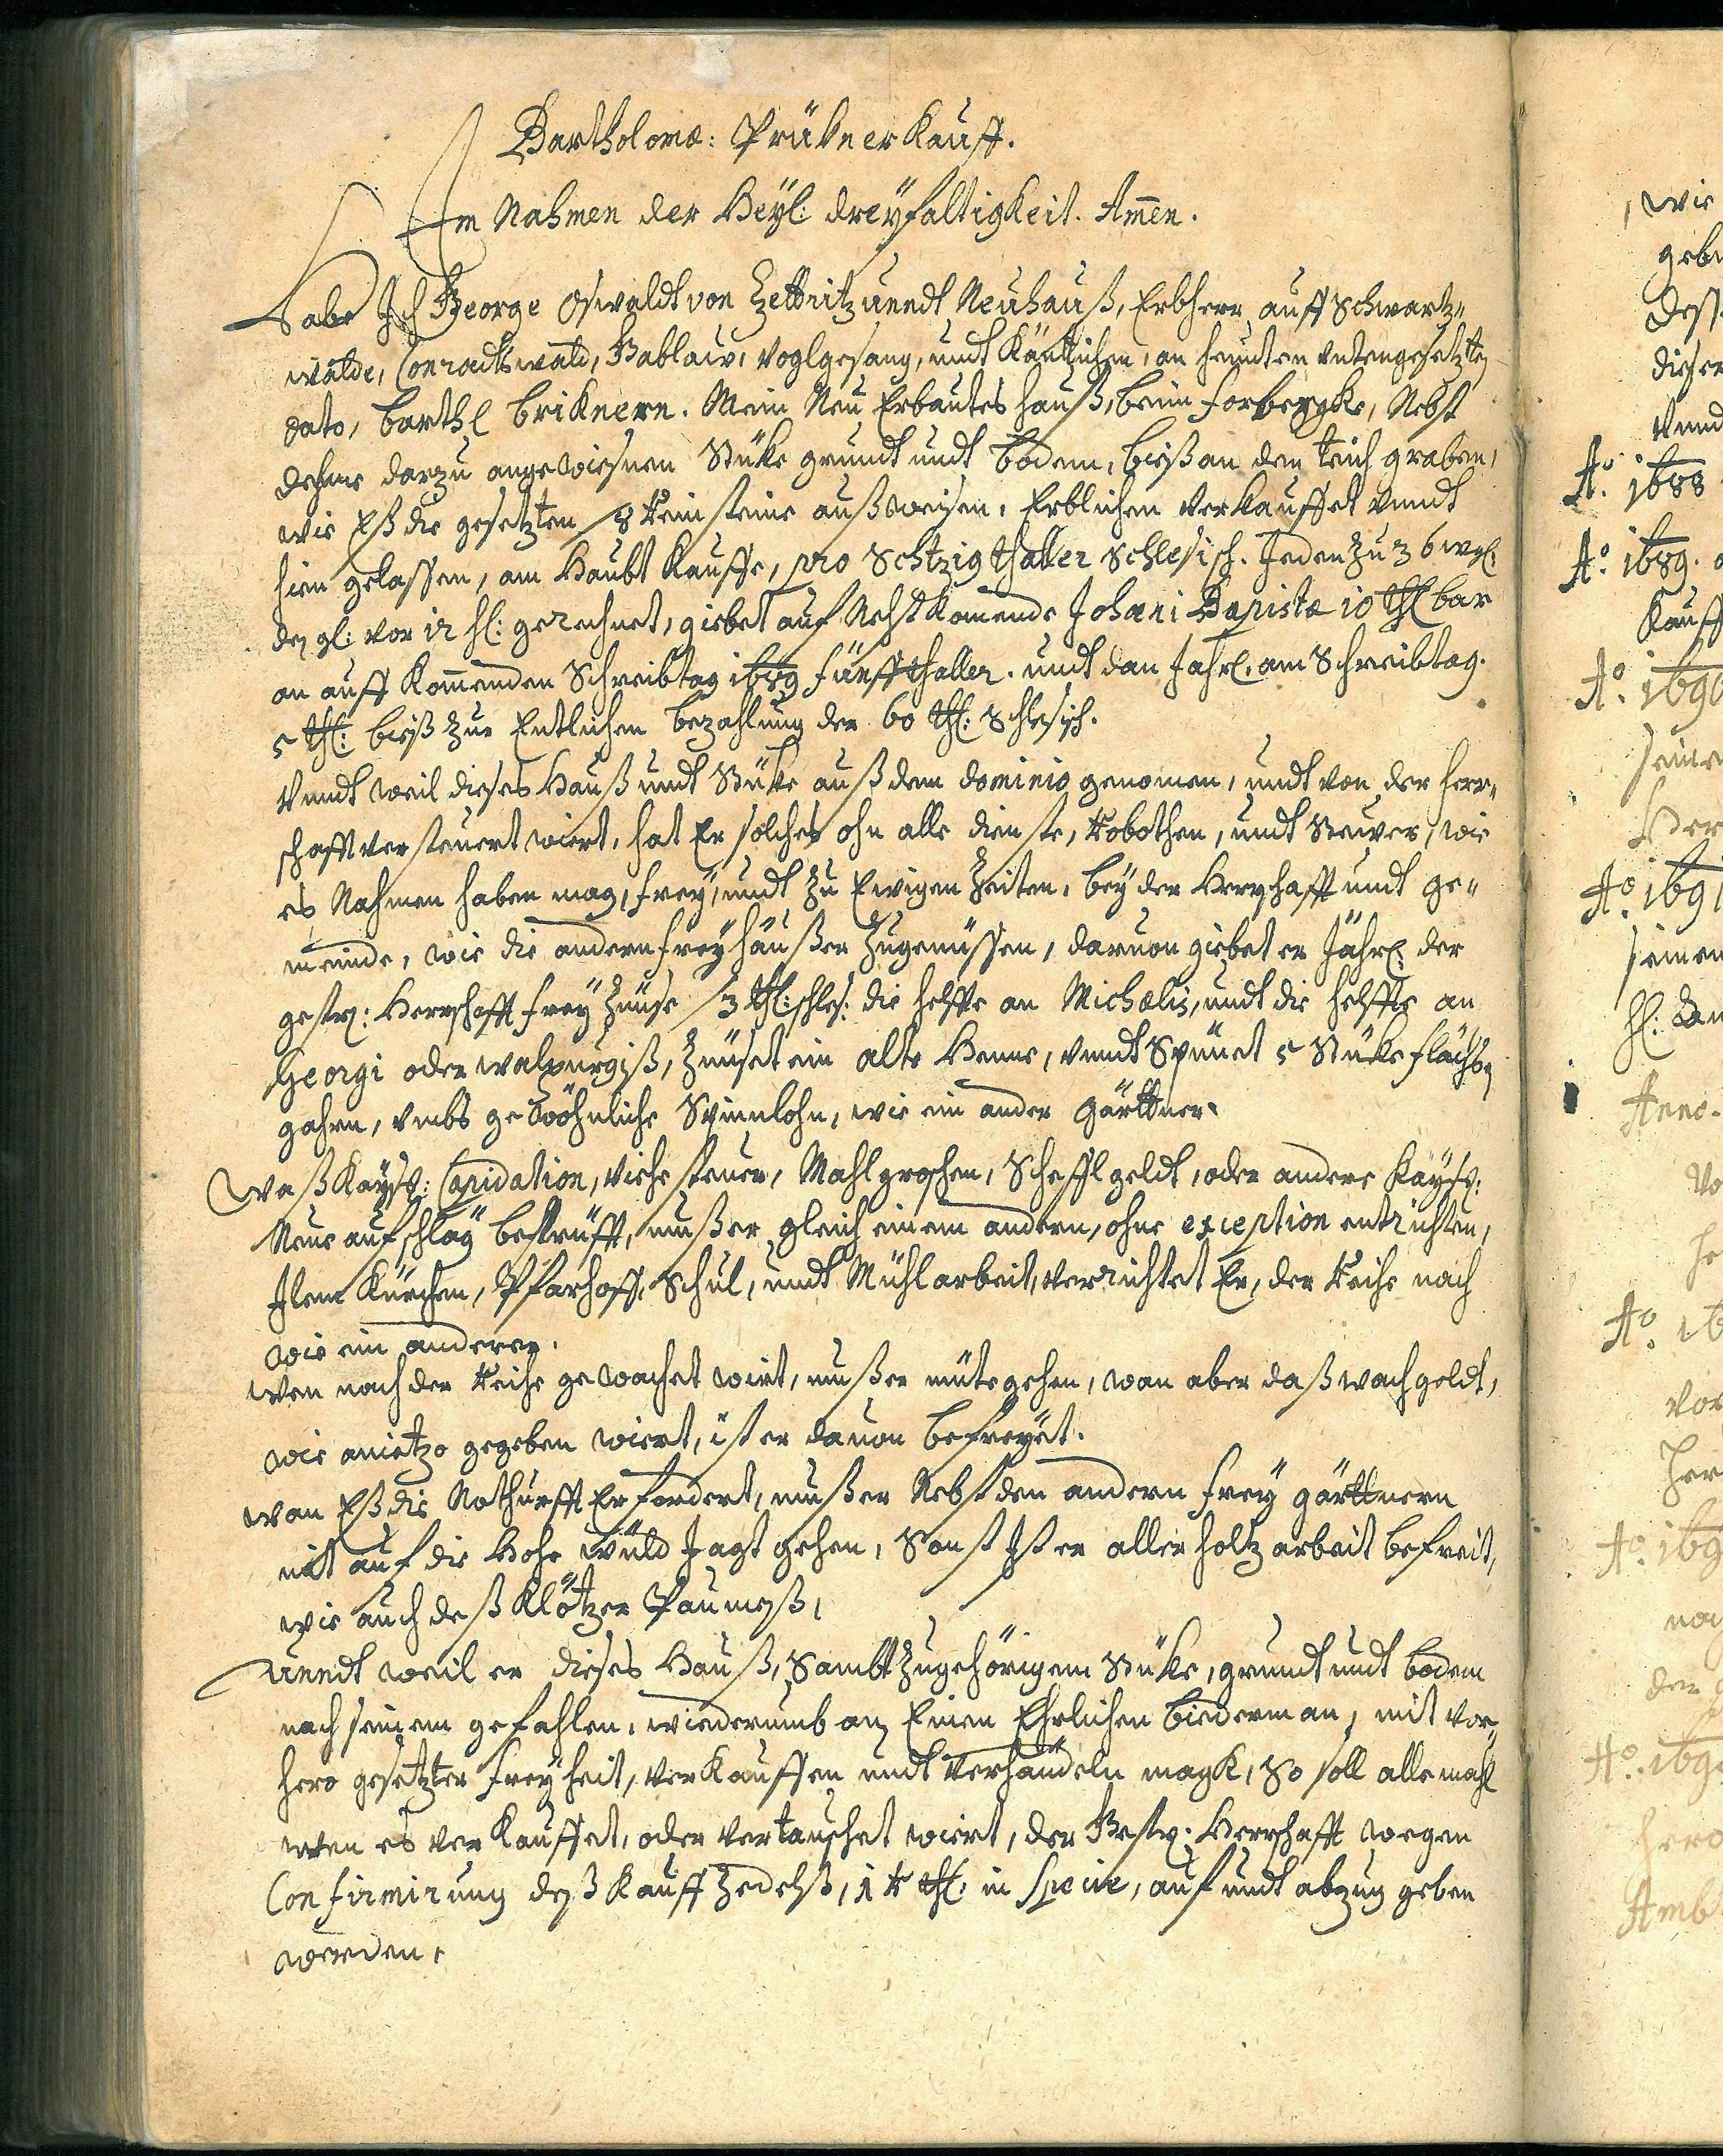 Bartholomæ: Prükner Kauff.
Im Nahmen der Heÿl: dreÿfaltigkeit. Amen.
Habe Ich George Oswaldt von Zettritz unndt Neuhauß, Erbherr auff Schwartz„
walde, Conradtswald, Gablaw, Voglgesang, undt Käntichen, an heunten untengesetzten
dato, Barthl Briknern. Mein Neu Erbautes Hauß, beim forbergke, Nebst
dehme darzu angewiesnen Stüke grundt undt Bodem, bieß an den teich graben,
wie Eß die gesetzten 8 Reinsteine außweisen, Erblichen Verkauffet unndt
hien gelassen, am Haubt Kauffe, pro Sechtzig thaller Schlesisch. Jeden zu 36 wgl.
den gl: vor 12 hl: gerechnet, giebet auf Nehst Komende Johani Bapistæ 10 thl bar
an auff Komenden Schreibtag 1689 fünff thaller. undt dan Jahrl. am Schreibtag.
5 thl: bieß zur Entlichen bezahlung der 60 thl: Schlesisch.
Unndt weil dieses Hauß undt Stüke auß dem dominio genomen, undt von der herr„
schafft versteuert wiert, hat Er solches ohn alle dienste, Robothen, undt Steuer, wie
es Nahmen haben mag, freÿ, undt zu Ewigen Zeiten, beÿ der Herrschafft undt ge„
meinde, wie die andern freÿhäußer zugenüssen, daruon giebet er Jährl: der
gestr: Herrschafft freÿ Zünse 3 thl: schles: die helffte an Michælis, undt die helffte an
Georgi oder walpurgiß, Zünset ein alte Henne, unndt Spünet 5 Stüke flächsen
gahrn, umbs gewöhnliche Spinnlohn, wie ein ander Gärttner.
Waß Kaÿsl: Capidation, Viehe steuer, Mahlgroschen, Scheffl geldt, oder andere Kaÿsl:
Neue aufschläg betrüfft, muß er gleich einem andern, ohne exception entrichten,
Item Kürchen, Pfarhoff, Schul, undt Mühlarbeit, verrichtet Er, der Reihe nach
wie ein anderer.
Wen nach der Reihe gewachet wirt, muß er mütegehen, wan aber daß wachgeldt,
wie anietzo gegeben wiert, ist er dauon befreÿet.
Wan Eß die Nothurfft Erfordert, muß er Nebst den andern freÿ gärttnern
mit auf die Hohe Wüld Jagt gehen, Sonst Ist er aller holtz arbeit befreit,
wie auch deß Klötzer
Unndt weil er dieses Hauß, Sambt zugehörigem Stüke, grundt undt bodem
nach seinem gefahlen, wiederumb an Einen Ehrlichen Biederman, mit vor„
hero gesetzter freÿheit, verkauffen undt Verhandeln magk, So soll allemahl
wen es verkauffet, oder vertauschet wiert, der Gestr: Herrschafft wegen
Confirmirung deß Kauff Zedelß, 1 R thl: in specie, auf undt abzug geben
werden.
wie
dieser
Unnd
A°. 1688
A°. 1689.
Kauff
A°. 1690
seinen
A°. 1691
seinen
Anno.
A°. 16
vor
A°. 169
der
A°. 169
hero
Amb